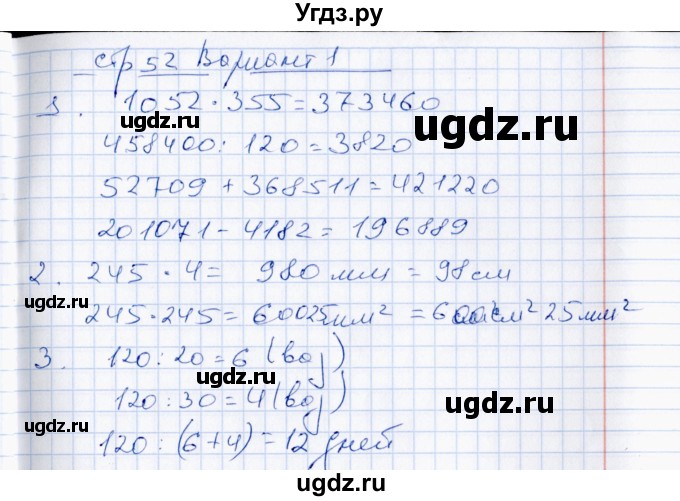 Угдз.ру
стр 52 Вариант 1
1. 1052 · 355 = 373460
458400 : 120 = 3820
52709 + 368511 = 421220
201071 - 4182 = 196889
2. 245 · 4 = 980 мм = 98 см
245 · 245 = 60025 мм² = 600 см² 25 мм²
3. 120 : 20 = 6 (воз)
120 : 30 = 4 (воз)
120 : (6 + 4) = 12 дней
ugdz.ru
ugdz.ru
ugdz.ru
ugdz.ru
ugdz.ru
ugdz.ru
ugdz.ru
ugdz.ru
ugdz.ru
ugdz.ru